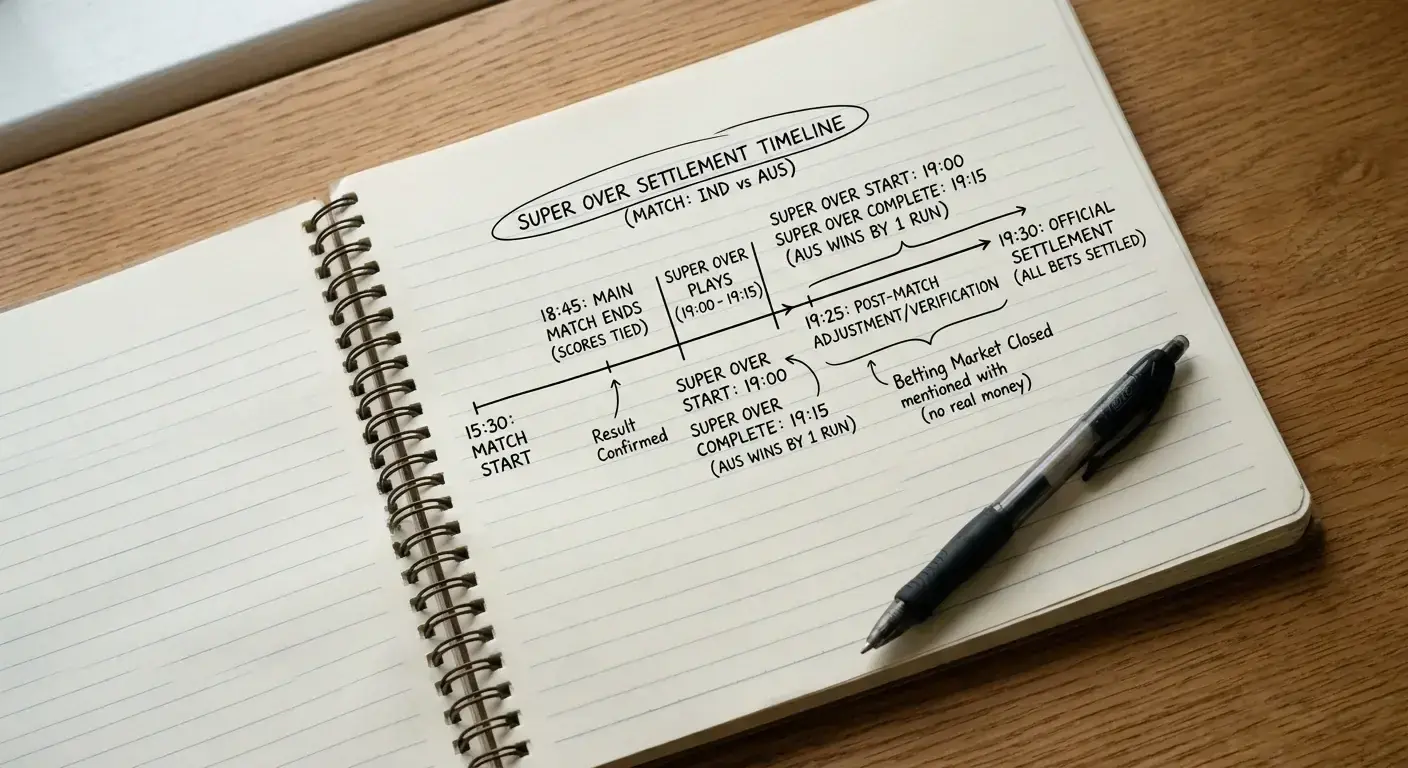 SUPER OVER SETTLEMENT TIMELINE
(MATCH: IND vs AUS)
15:30:
MATCH
START
18:45: MAIN
MATCH ENDS
(SCORES TIED)
Result
Confirmed
SUPER OVER
PLAYS
(19:00-19:15)
SUPER OVER
START: 19:00
SUPER OVER
COMPLETE: 19:15
(AUS WINS BY 1 RUN)
SUPER OVER START: 19:00
SUPER OVER COMPLETE: 19:15
(AUS WINS BY 1 RUN)
19:25: POST-MATCH
ADJUSTMENT/VERIFICATION
Betting Market Closed
mentioned with
(no real money)
19:30: OFFICIAL
SETTLEMENT
(ALL BETS SETTLED)